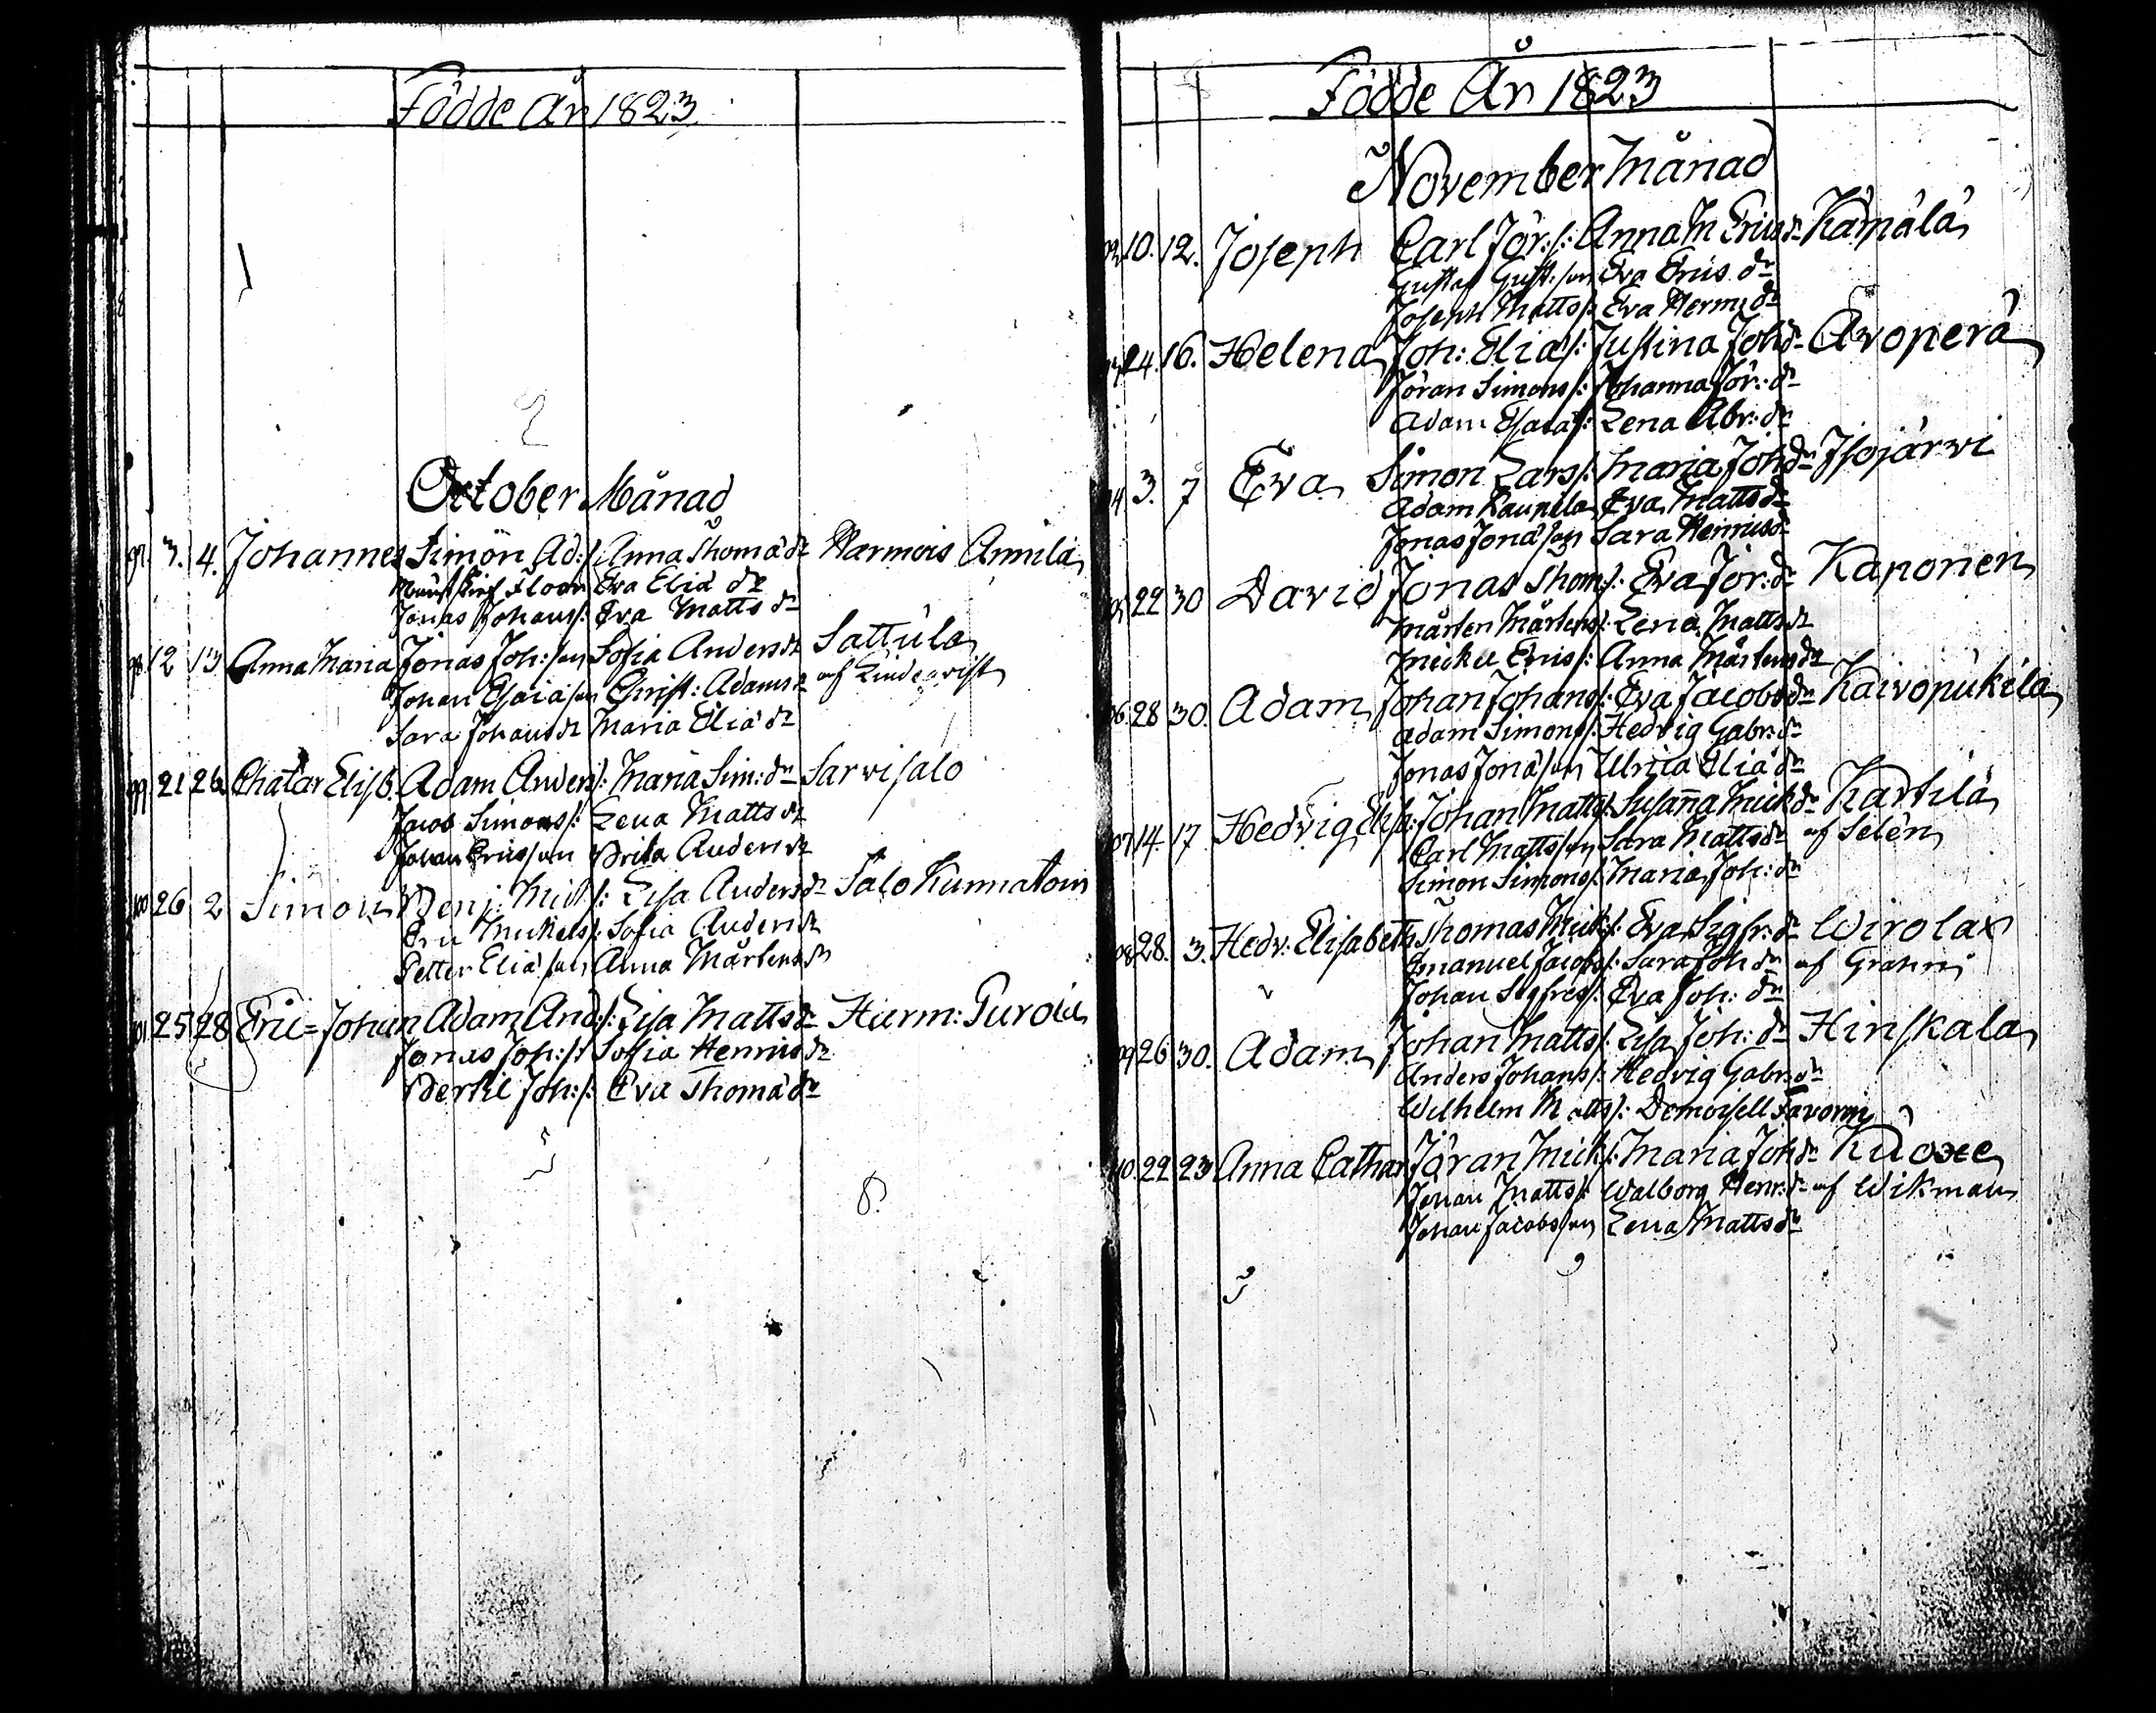 Födde År 1823.
October Månad
97. 3. 4. Johannes Simon Ad: s: Anna Thomä dr Harmois Annila
Floor Eva Eliä dr
Jonas Johans s: Eva Matts dr
98. 12 13 Anna Maria Jonas Joh: son Sofia Anders dr Sattula
Johan Esaiä son Christ: Adams dr af Lindqvist
Sara Johans dr Maria Eliä dr
99 21 26 Chatar Elisb. Adam Anders: Maria Sim: dr Sarvisalo
Jacob Simons s: Lena Matts dr
Johan Ericsson Brita Anders dr
100 26 2 Simon Benj: Mick s: Lisa Anders dr Salo Kunnatom
Eric Mickels s: Sofia Anders dr
Petter Eliä son Anna Mårtens dr
101 25 28 Eric=Johan Adam And: s: Lisa Matts dr Harm: Purola
Jonas Joh: s: Sofia Henrics dr
Bertil Joh: s: Eva Thomä dr
Födde År 1823
November Månad
02 10. 12. Joseph Carl Jör: s: Anna M Erics dr Kämälä
Gustaf Gust: son Eva Erics dr
Joseph Matts s: Eva Herm: dr
24. 16. Helena Joh: Eliä s: Justina Joh dr Avoperä
Jöran Simons s: Johanna Jör: dr
Adam Esaiä s: Lena Abr: dr
04 3. 7 Eva Simon Lars s: Maria Joh dr Isojärvi
Adam Kaupila Eva Matts dr
Jonas Jonä son Sara Henrics dr
05 22 30 David Jonas Thom s: Eva Jör: dr Kaponen
Mårten Mårtens s: Lena Matts dr
Mickel Erics s: Anna Mårtens dr
06 28 30. Adam Johan Johans s: Eva Jacobs dr Kaivopukila
Adam Simons s: Hedvig Gabr: dr
Jonas Jonä son Ulrica Eliä dr
07 14. 17 Hedvig Elisb: Johan Matts s: Susanna Mick dr Kartila
Carl Mattsson Sara Matts dr af Selén
Simon Simons s: Maria Joh: dr
08 28. 3. Hedv: Elisabeth Thomas Mick s: Eva Sigfr: dr Wirolax
Emanuel Jacobs s: Sara Joh dr af Grahn
Johan Sigfreds s: Eva Joh: dr
09 26 30. Adam Johan Matts s: Lisa Joh: dr Hinskala
Anders Johans s: Hedvig Gabr: dr
Wilhelm Matts s: Demoisell Favorin
10. 22 23 Anna Cathar Jöran Mick s: Maria Joh dr Kuoxe
Johan Matts s: Walborg Henr: dr af Wikman
Johan Jacobsson Lena Matts dr